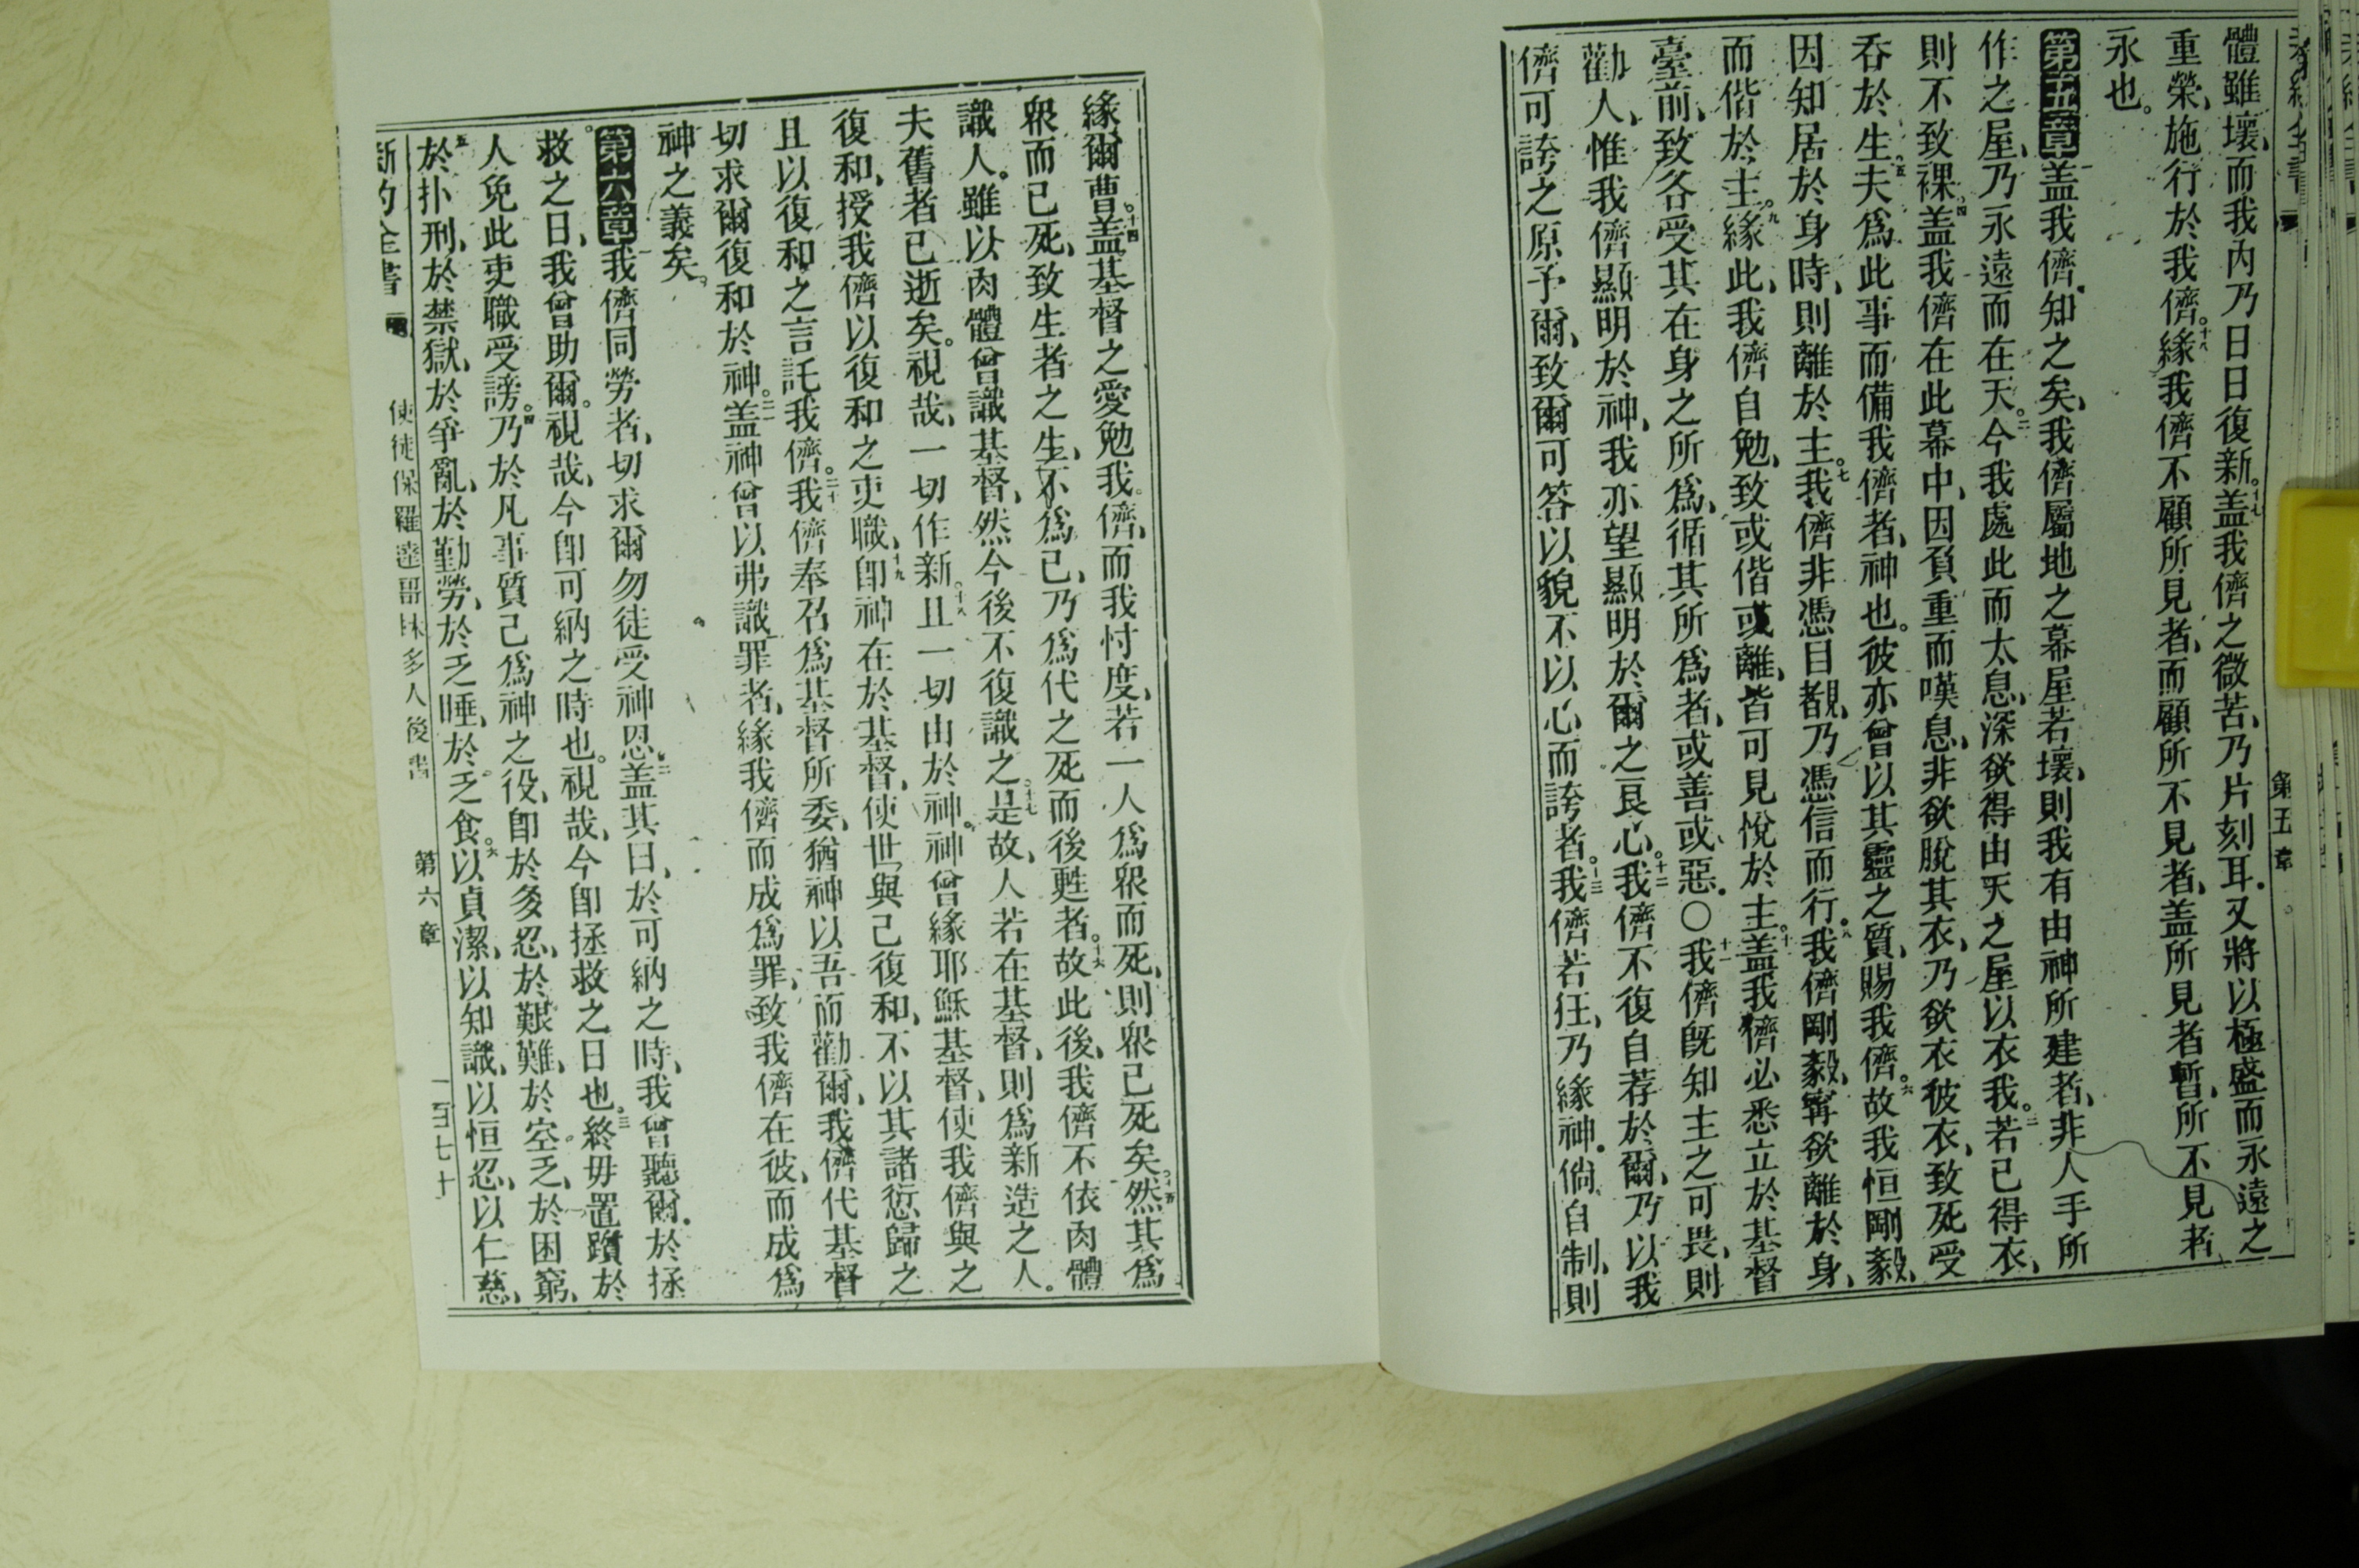 第五章
體雖壞、而我內乃日日復新。十七盖我儕之微苦、乃片刻耳、又將以極盛而永遠之
重榮、施行於我儕。十八緣我儕不顧所見者、而顧所不見者、盖所見者暫、所不見者
永也。
第五章盖我儕知之矣、我儕屬地之幕屋若壞、則我有由神所建者、非人手所
作之屋、乃永遠而在天。二今我處此而太息、深欲得由天之屋以衣我。三若已得衣、
則不致裸。四盖我儕在此幕中、因負重而嘆息、非欲脫其衣、乃欲衣彼衣、致死受
吞於生。五夫爲此事而備我儕者、神也。彼亦曾以其靈之質、賜我儕。六故我恒剛毅、
因知居於身時、則離於主。七我儕非憑目覩、乃憑信而行。八我儕剛毅、寗欲離於身、
而偕於主。九緣此、我儕自勉、致或偕或離、皆可見悅於主。十盖我儕必悉立於基督
臺前、致各受其在身之所爲、循其所爲者、或善或惡。〇十一我儕既知主之可畏、則
勸人、惟我儕顯明於神、我亦望顯明於爾之良心。十二我儕不復自荐於爾、乃以我
儕可誇之原予爾、致爾可答以貌不以心而誇者。十三我儕若狂、乃緣神。倘自制、則
緣爾曹。十四盖基督之愛勉我儕、而我忖度、若一人爲眾而死、則眾已死矣。十五然其爲
眾而已死、致生者之生、不爲己、乃爲代之死而後甦者。十六故此後、我儕不依肉體
識人。雖以肉體曾識基督、然今後不復識之。十七是故、人若在基督、則爲新造之人。
夫舊者已逝矣。視哉、一切作新。十八且一切由於神。神曾緣耶穌基督、使我儕與之
復和、授我儕以復和之吏職、十九卽神在於基督、使世與己復和、不以其諸愆歸之
且以復和之言託我儕。二十我儕奉召爲基督所委、猶神以吾而勸爾、我儕代基督
切求爾復和於神。二一盖神曾以弗識罪者、緣我儕而成爲罪、致我儕在彼、而成爲
神之義矣。
第六章我儕同勞者、切求爾勿徒受神恩。二盖其曰、於可納之時、我曾聽爾、於拯
救之日、我曾助爾。視哉、今卽可納之時也。視哉、今卽拯救之日也。三終毋置躓於
人、免此吏職受謗。四乃於凡事質己爲神之役、卽於多忍、於艱難、於空乏、於困窮、
五於扑刑、於禁獄、於爭亂、於勤勞、於乏睡、於乏食。六以貞潔、以知識、以恒忍、以仁慈、
新約全書 使徒保羅達哥林多人後書 第六章 一百七十